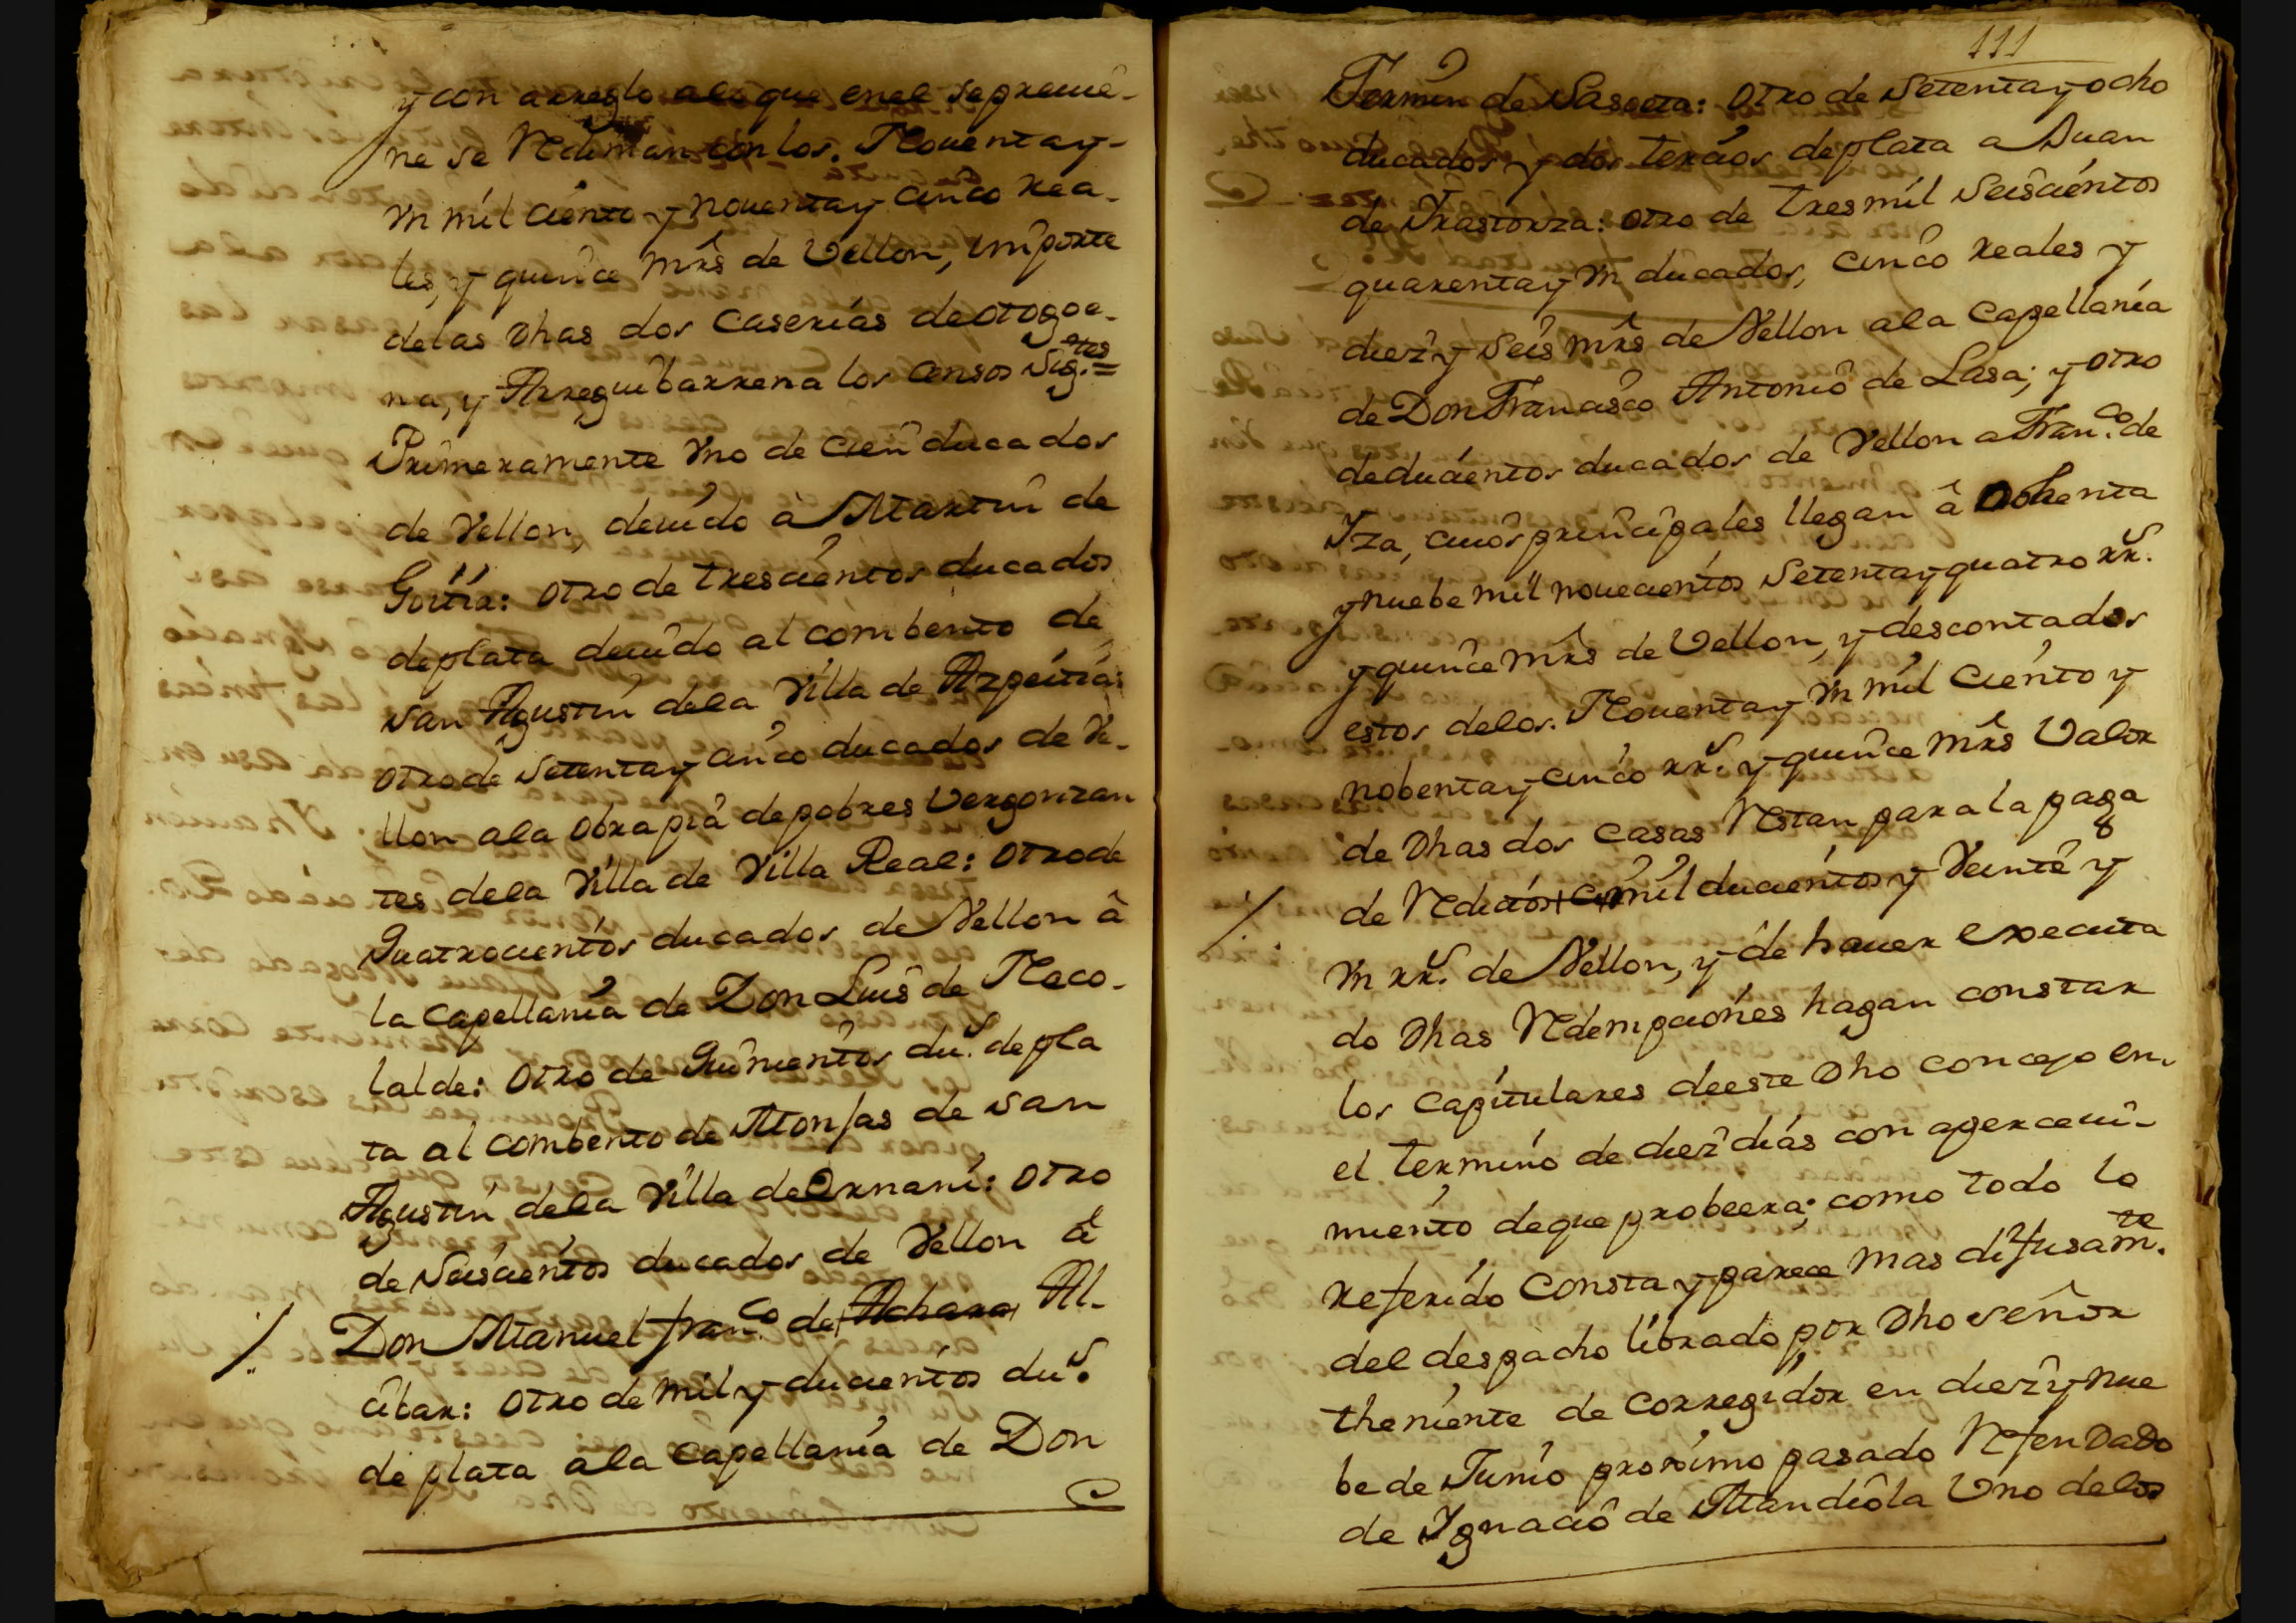 y con arreglo alo que enel sepreuie-
ne se Rediman con los. Nouentay-
vn mil ciento y nouentay cinco rea-
les, y quince mrs de Vellon, importe
delas dhas dos caserias deotogoe-
na, y Arreguibarrena los censos sig.tes=
Primeramente vno de cien ducados
de Vellon, deuido â Martin de
Goitia: otro de trescientos ducados
deplata deuido al combento de
san Agustin dela Villa de Azpeitia:
otro de setentay cinco ducados de Ve-
llon ala obrapia depobres Vergonzan
tes dela Villa de Villa Real: otrode
quatrocientos ducados de Vellon â
la capellania de Don Luis de Neco-
lalde: otro de quinientos du.s depla
ta al combento de Monjas de san
Agustin dela Villa de Ernani: otro
de seiscientos ducados de Vellon â
Don Manuel fran.co de Achara Al-
cibar: otro de mil y ducientos du.s
de plata ala capellania de Don
111
Fermin de Sasoeta: otro de setentay ocho
ducados y dos tercios deplata a Juan
de Yrastorza: otro de tresmil seiscientos
quarentay vn ducados, cinco reales y
diez y seis mrs de Vellon ala capellania
de Don Francisco Antonio de Lasa; y otro
deducientos ducados de Vellon a Fran.co de
Yza, cuios principales llegan â ochenta
y nuebe mil nouecientos setentay quatro rr.s
y quince mrs de Vellon, y descontados
estos delos. Nouentay vn mil ciento y
nobentay cinco rr.s y quince mrs Valor
de dhas dos casas Restan para la paga
de Reditos mil ducientos y Veinte y
vn rr.s de Vellon, y de hauer executa
do dhas Redempciones hagan constar
los capitulares deeste dho concejo en
el termino de diez dias con aperceui-
miento deque probeera; como todo lo
referido consta y parece mas difusam.te
del despacho librado por dho señor
theniente de corregidor en diez y nue
be de Junio proximo pasado Refendado
de Ygnacio de Mandiola Vno delos